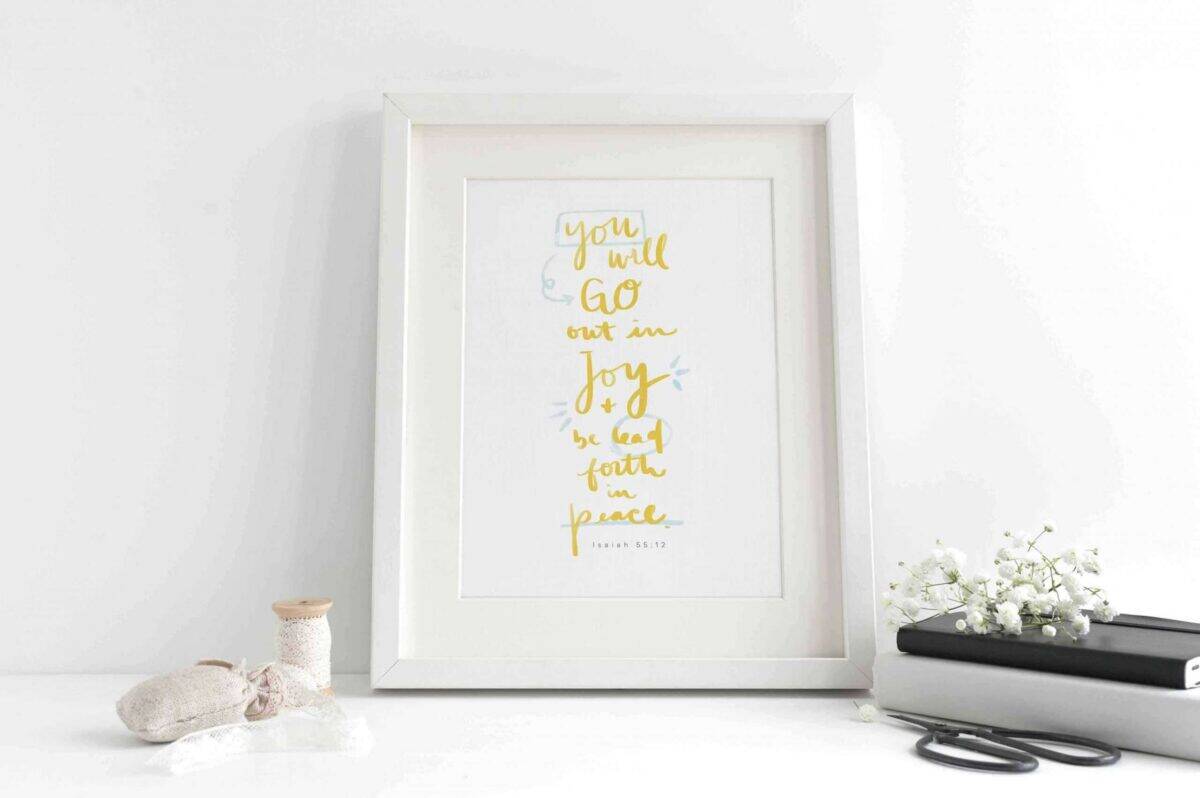 you
will
GO
out in
Joy
+
be lead
forth
in
peace.
Isaiah 55:12